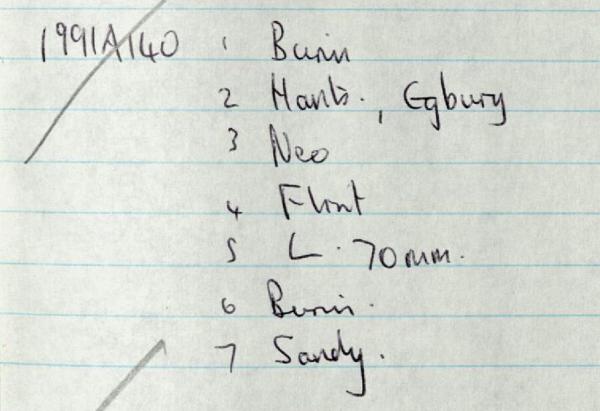 1991A140 1 Burin
2 Hants., Egbury
3 Neo
4 Flint
5 L. 70mm.
6 Burin.
7 Sandy.